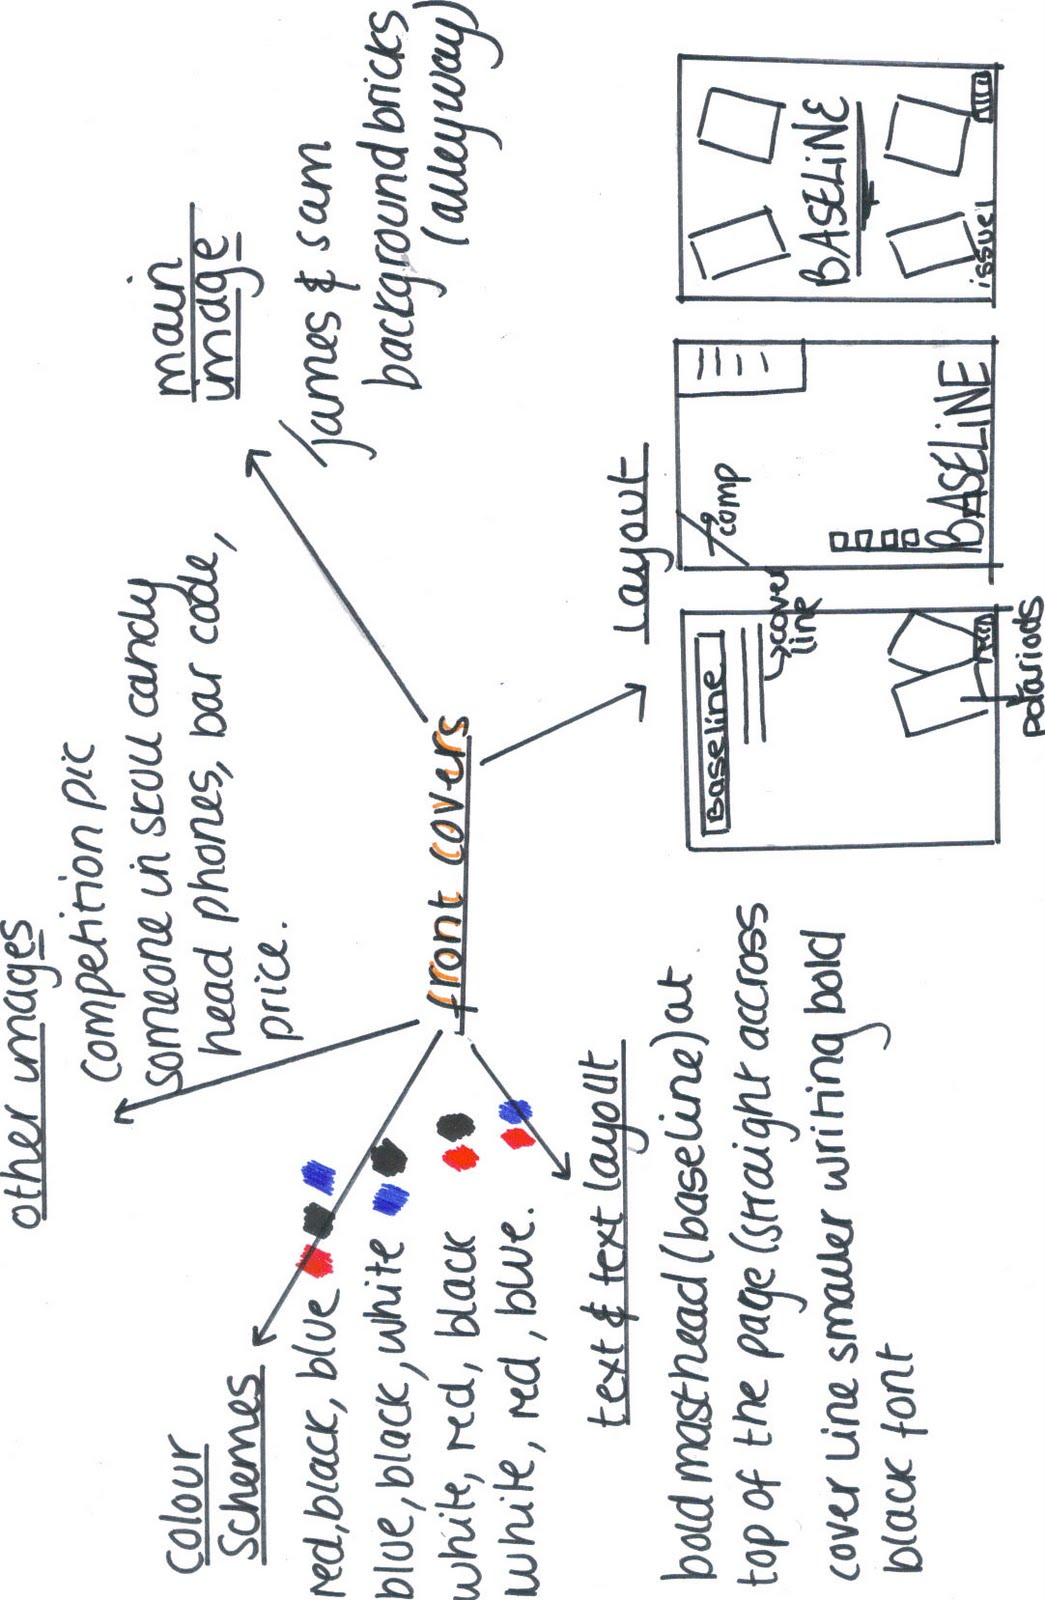 other images
competition pic
someone in skull candy
head phones, bar code,
price.
main
image
James & sam
background bricks
(alleyway)
colour
schemes
red, black, blue
blue, black, white
white, red, black
white, red, blue.
front covers
text & text layout
bold masthead (baseline) at
top of the page (straight accross
cover line smaller writing bold
black font
Layout
Baseline
cover
line
polariods
comp
BASELINE
BASELINE
issue1